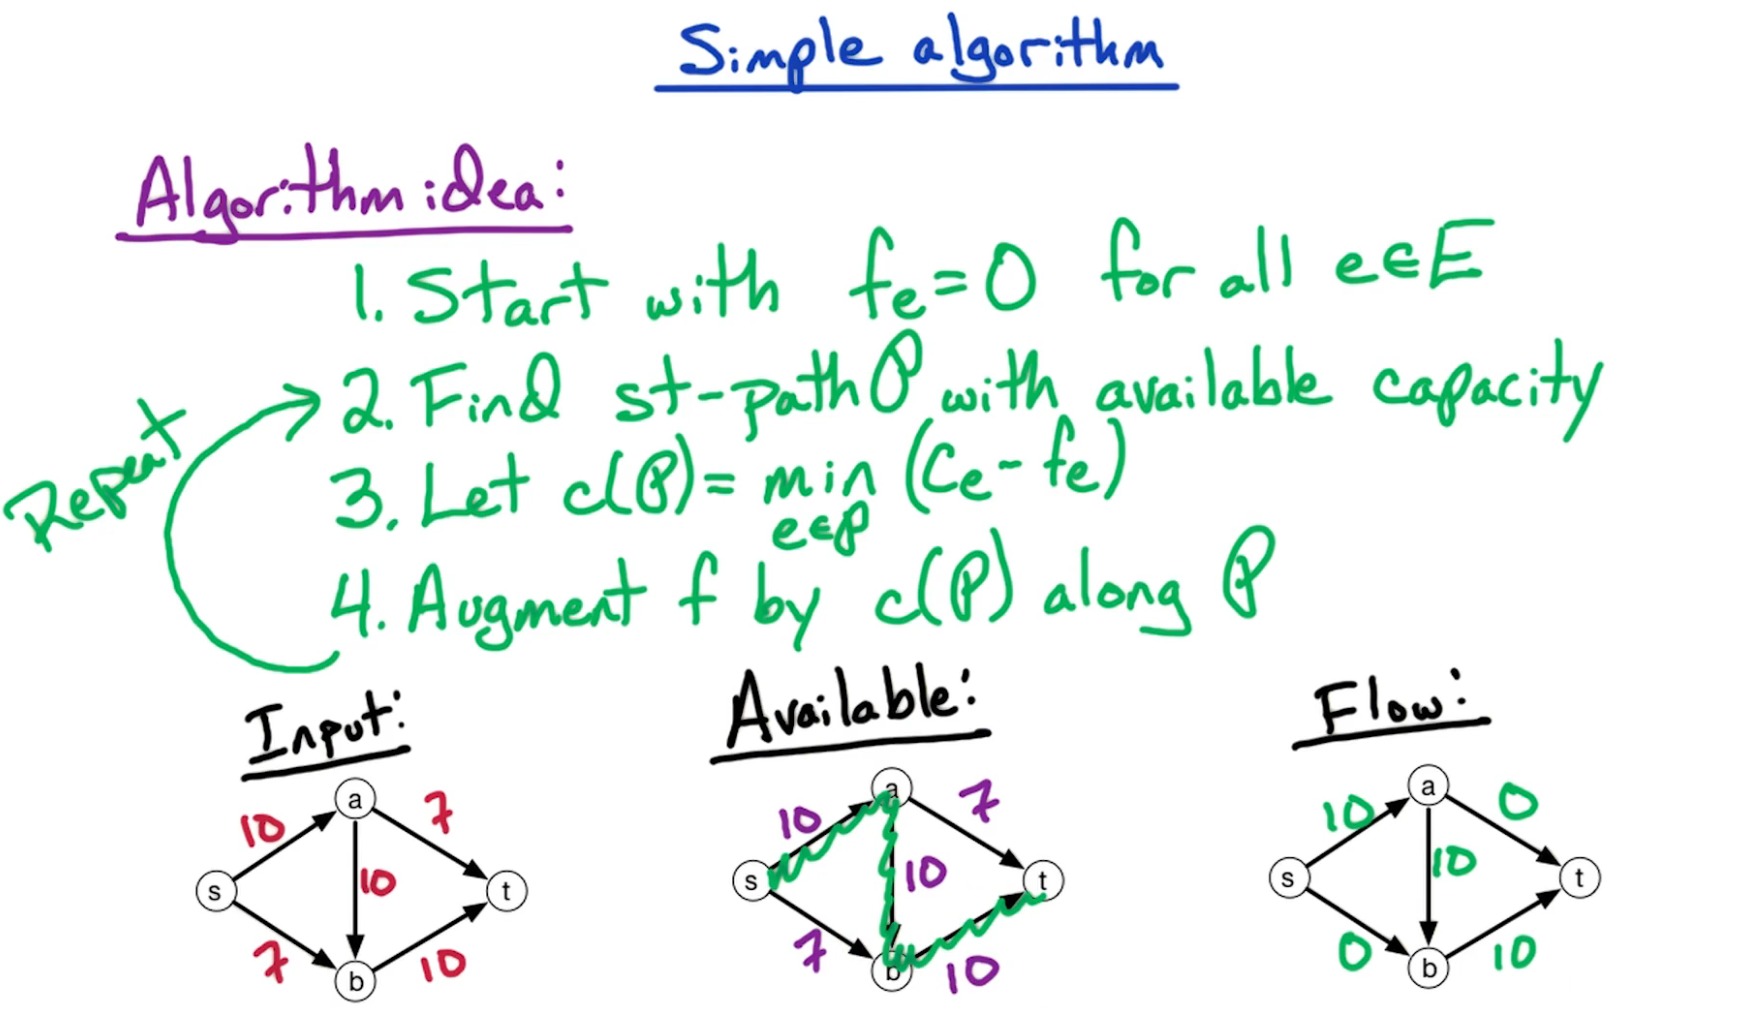 Simple algorithm
Algorithm idea:
1. Start with fe=0 for all e∈E
2. Find st-path P with available capacity
3. Let c(P)= min (Ce-fe)
e∈P
4. Augment f by c(P) along P
Repeat
Input:
a
10
7
s
10
t
7
10
b
Available:
a
10
7
s
10
t
7
10
b
Flow:
a
10
0
s
10
t
0
10
b